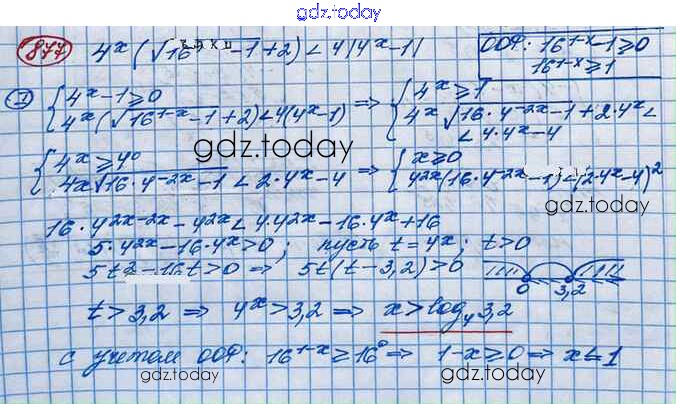 gdz.today
877 4^x(√(16^{1-x}-1)+2)<4|4^x-1| ООФ: 16^{1-x}-1≥0
16^{1-x}≥1
I {4^x-1≥0 ⇒ {4^x≥1
4^x(√(16^{1-x}-1)+2)<4(4^x-1) 4^x√(16·4^{-2x}-1)+2·4^x<
<4·4^x-4
gdz.today
{4^x≥4^0 ⇒ {x≥0
4^x√(16·4^{-2x}-1)<2·4^x-4 4^{2x}(16·4^{-2x}-1)<(2·4^x-4)^2
gdz.today
16·4^{2x-2x}-4^{2x}<4·4^{2x}-16·4^x+16
5·4^{2x}-16·4^x>0; пусть t=4^x; t>0
5t^2-16t>0 ⇒ 5t(t-3,2)>0 0 3,2
t>3,2 ⇒ 4^x>3,2 ⇒ x>log_4 3,2
с учетом ООФ: 16^{1-x}≥16^0 ⇒ 1-x≥0 ⇒ x≤1
gdz.today gdz.today